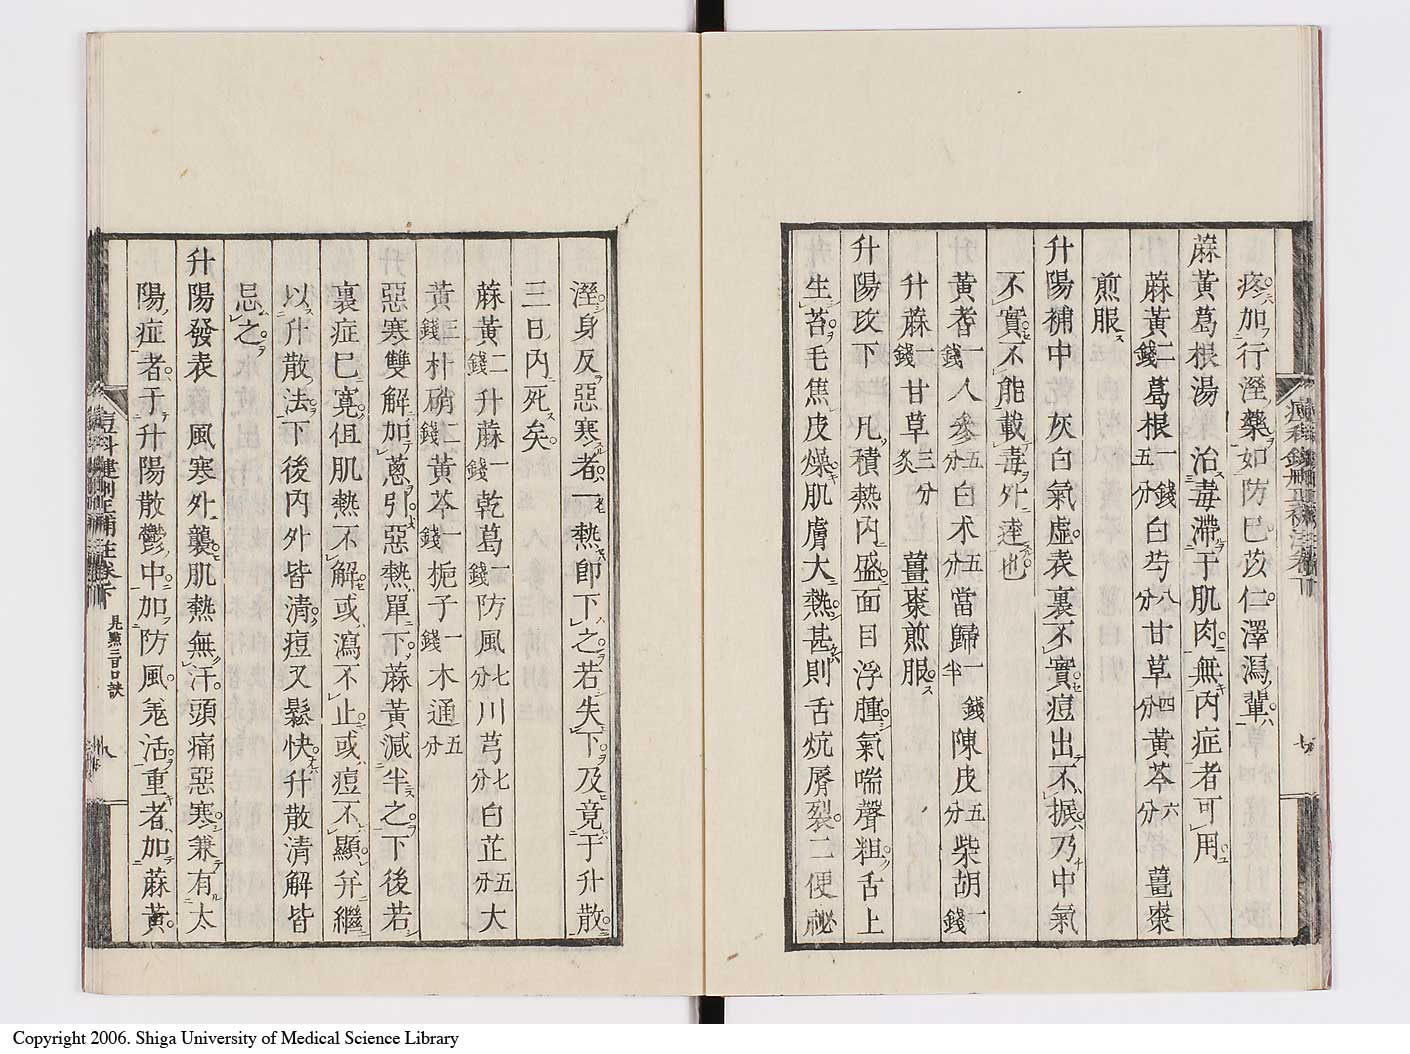 疼加行溼藥如防已苡仁澤瀉輩
蔴黃葛根湯　治毒滯于肌肉無內症者可用
蔴黃二錢葛根一錢五分白芍八分甘草四分黃芩六分　薑棗
煎服
升陽補中　灰白氣虛表裏不實痘出不振乃中氣
不實不能載毒外達也
黃耆一錢人參五分白朮五分當歸一錢半陳皮五分柴胡一錢
升蔴一錢甘草三分炙　薑棗煎服
升陽攻下　凡積熱內盛面目浮腫氣喘聲粗舌上
生苔毛焦皮燥肌膚大熱甚則舌炕脣裂二便祕
溼身反惡寒者一熱卽下之若失下及竟于升散
三日內死矣
蔴黃二錢升蔴一錢乾葛一錢防風七分川芎七分白芷五分大
黃三錢朴硝二錢黃芩一錢梔子一錢木通五分
惡寒雙解加蔥引惡熱單下蔴黃減半之下後若
裏症已寬但肌熱不解或瀉不止或痘不顯幷繼
以升散法下後內外皆清痘又鬆快升散清解皆
忌之
升陽發表　風寒外襲肌熱無汗頭痛惡寒兼有太
陽症者于升陽散鬱中加防風羗活重者加蔴黃
痘科鍵刪正補註卷下　見點三日口訣
Copyright 2006. Shiga University of Medical Science Library